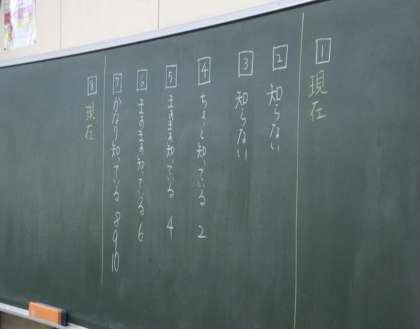 1 現在
2 知らない
3 知らない
4 ちょっと知っている 2
5 まあまあ知っている 4
6 まあまあ知っている 6
7 かなり知っている 8 9 10
8 現在